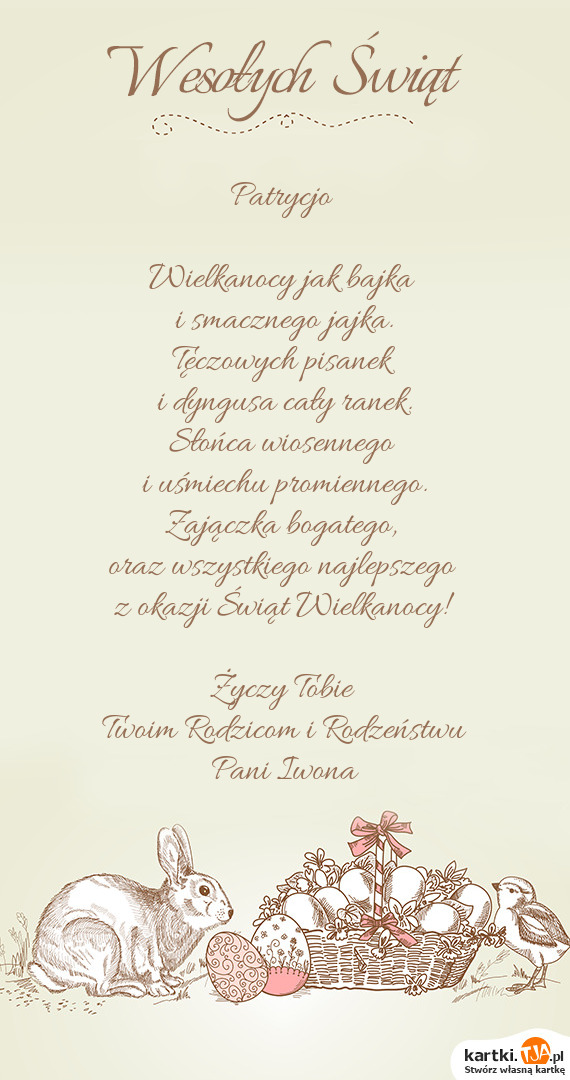 Wesołych Świąt
Patrycjo
Wielkanocy jak bajka
i smacznego jajka.
Tęczowych pisanek
i dyngusa cały ranek.
Słońca wiosennego
i uśmiechu promiennego.
Zajączka bogatego,
oraz wszystkiego najlepszego
z okazji Świąt Wielkanocy!
Życzy Tobie
Twoim Rodzicom i Rodzeństwu
Pani Iwona
kartki.TJA.pl
Stwórz własną kartkę